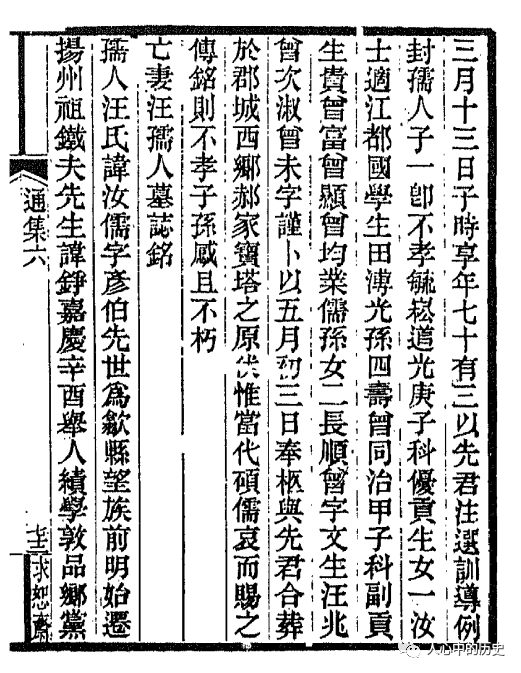 三月十三日子時享年七十有三以先君注選訓導例
封孺人子一卽不孝毓崧道光庚子科優貢生女一汝
士適江都國學生田溥光孫四壽曾同治甲子科副貢
生貴曾富曾顯曾均業儒孫女二長順曾字文生汪兆
曾次淑曾未字謹卜以五月初三日奉柩與先君合葬
於郡城西鄉郝家寶塔之原伏惟當代碩儒哀而賜之
傳銘則不孝子孫感且不朽
亡妻汪孺人墓誌銘
孺人汪氏諱汝儒字彥伯先世爲歙縣望族前明始遷
揚州祖鐵夫先生諱錚嘉慶辛酉舉人績學敦品鄉黨
通集六
求恕齋
人心中的历史